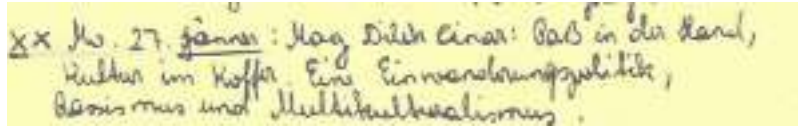 XX Mo. 27. Jänner: Mag Dilek Cinar: Paß in der Hand,
Kultur im Koffer. Eine Einwanderungspolitik,
Rassismus und Multikulturalismus.